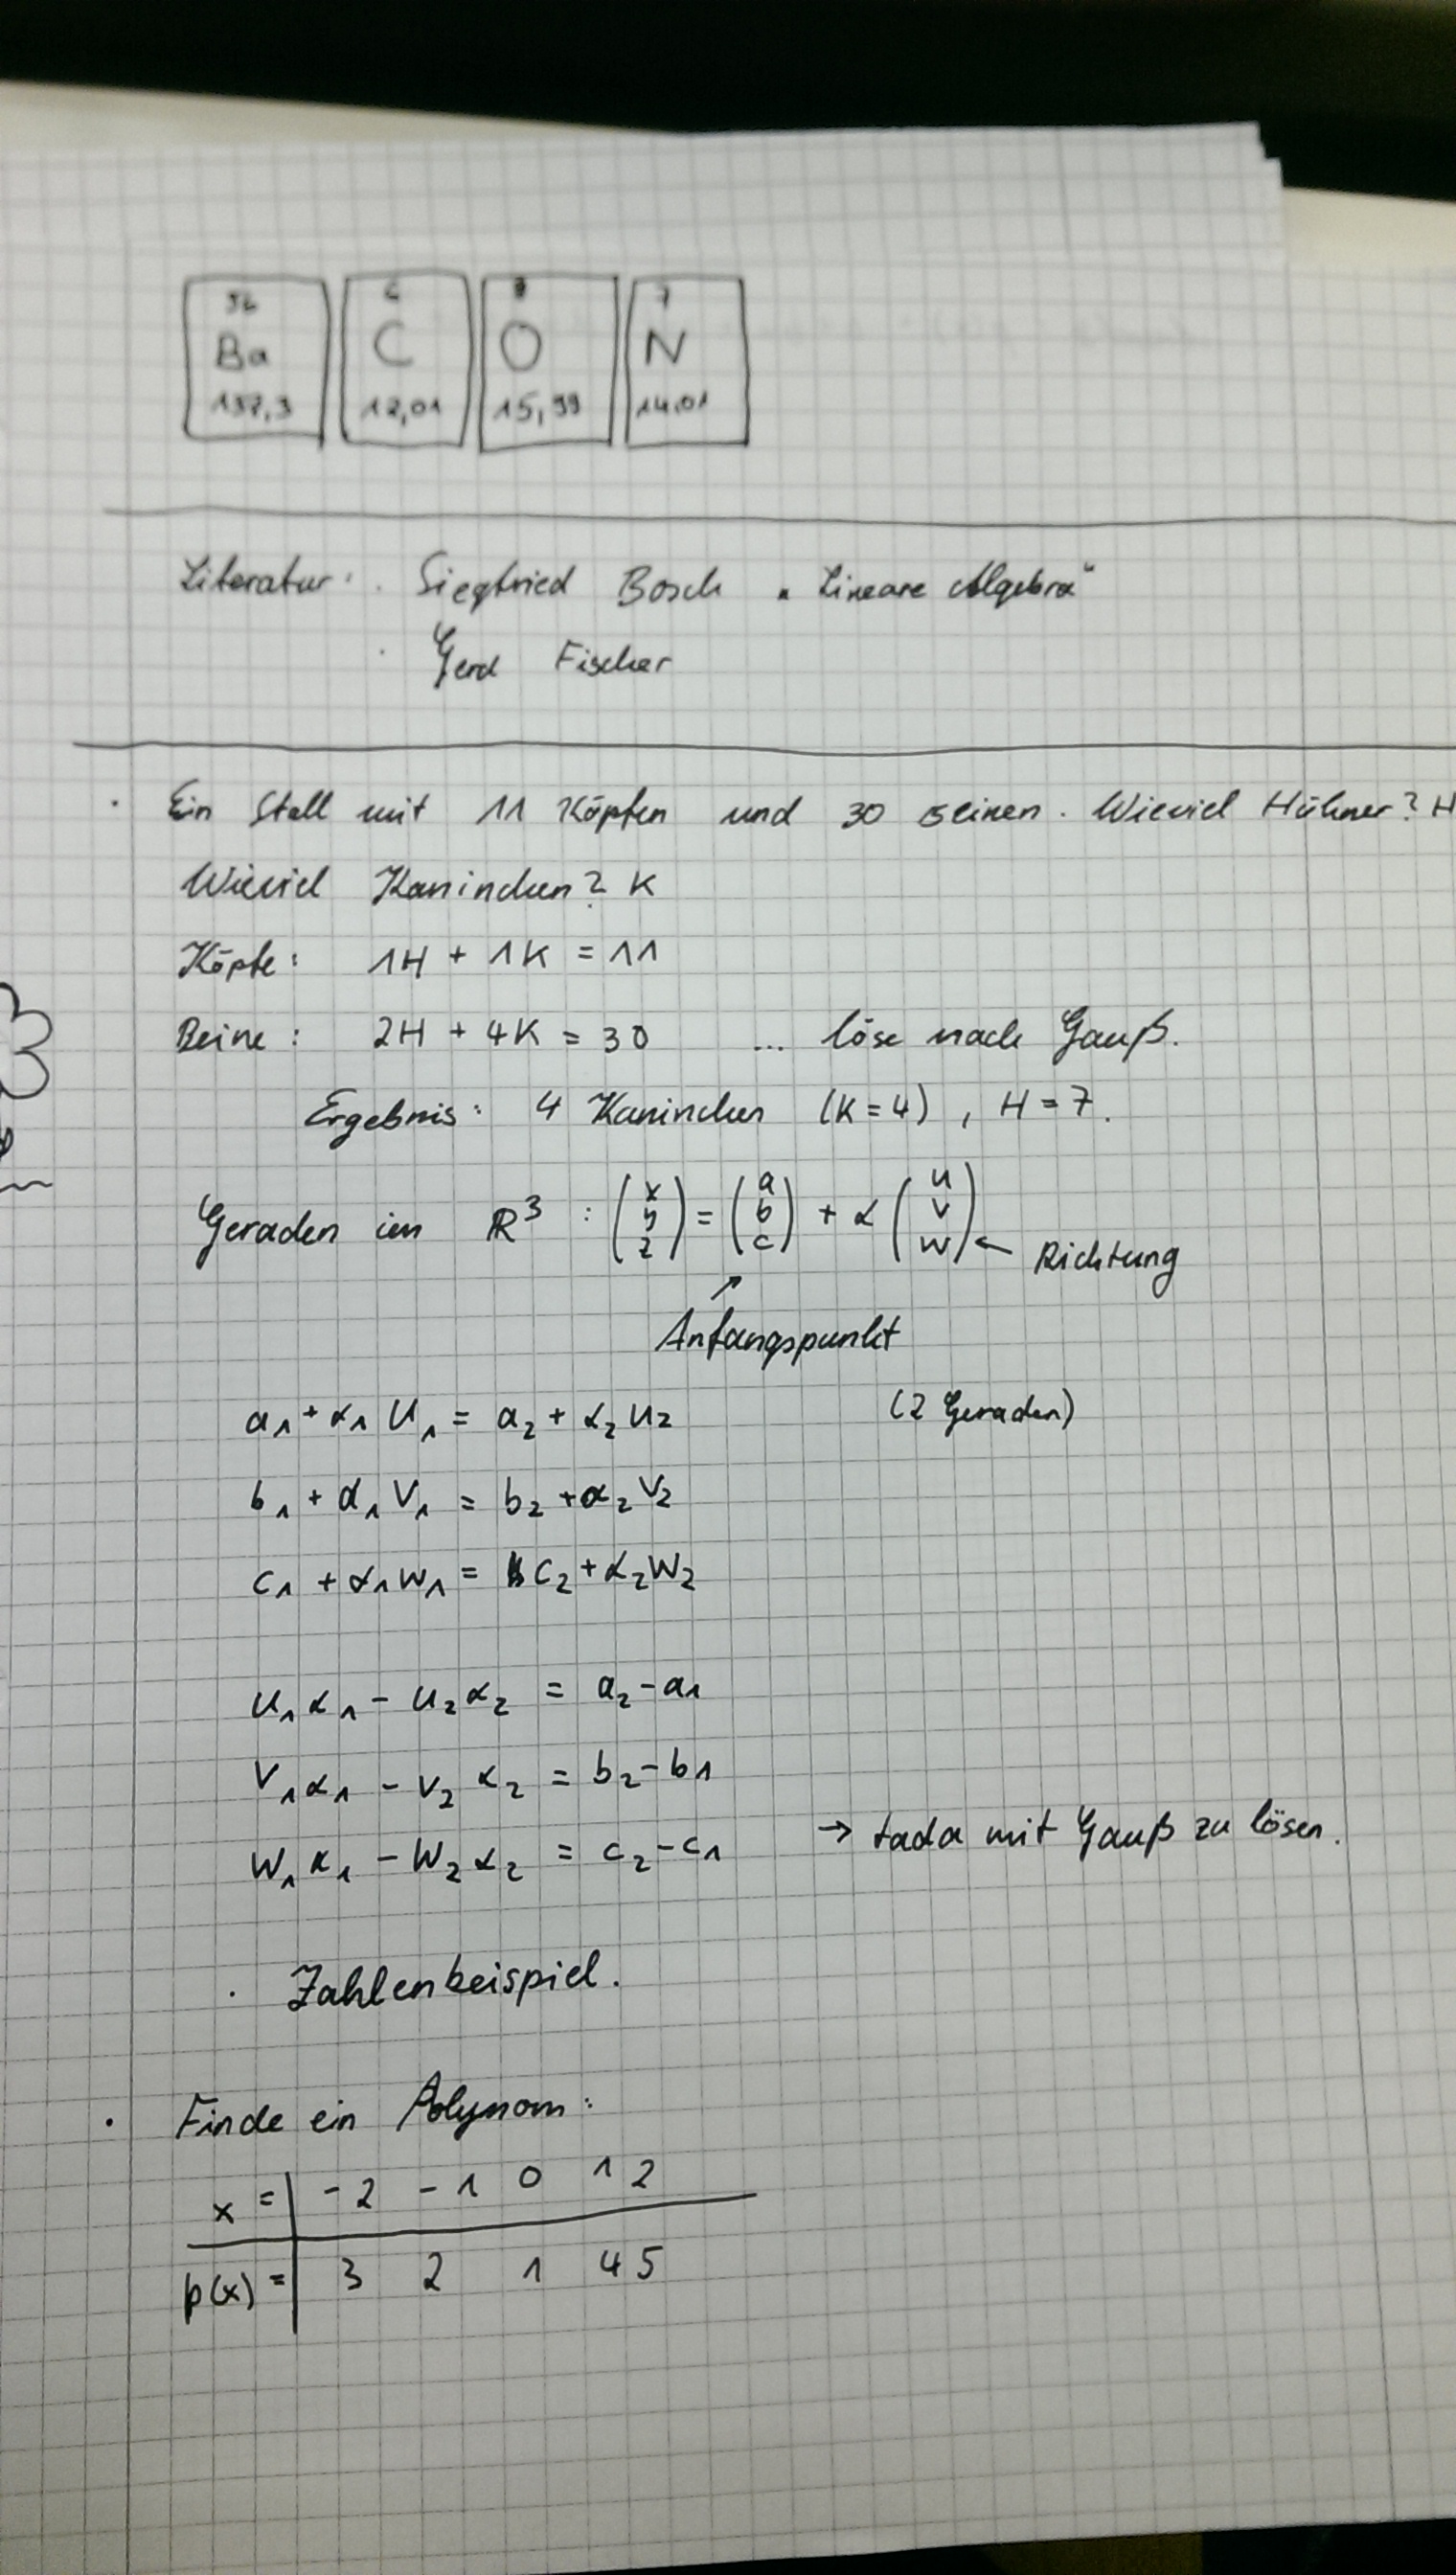 56 6 8 7
Ba C O N
137,3 12,01 15,99 14,01
Literatur: · Siegfried Bosch „Lineare Algebra“
· Gerd Fischer
· Ein Stall mit 11 Köpfen und 30 Beinen. Wieviel Hühner? H
Wieviel Kaninchen? K
Köpfe: 1H + 1K = 11
Beine: 2H + 4K = 30 ... löse nach Gauß.
Ergebnis: 4 Kaninchen (K=4), H=7.
Geraden im ℝ³ : (x y z) = (a b c) + α (u v w) ← Richtung
↗
Anfangspunkt
a₁ + α₁ u₁ = a₂ + α₂ u₂ (2 Geraden)
b₁ + α₁ v₁ = b₂ + α₂ v₂
c₁ + α₁ w₁ = c₂ + α₂ w₂
u₁ α₁ - u₂ α₂ = a₂ - a₁
v₁ α₁ - v₂ α₂ = b₂ - b₁
w₁ α₁ - w₂ α₂ = c₂ - c₁ → tada mit Gauß zu lösen.
· Zahlenbeispiel.
· Finde ein Polynom:
x = | -2 -1 0 1 2
p(x) = | 3 2 1 4 5